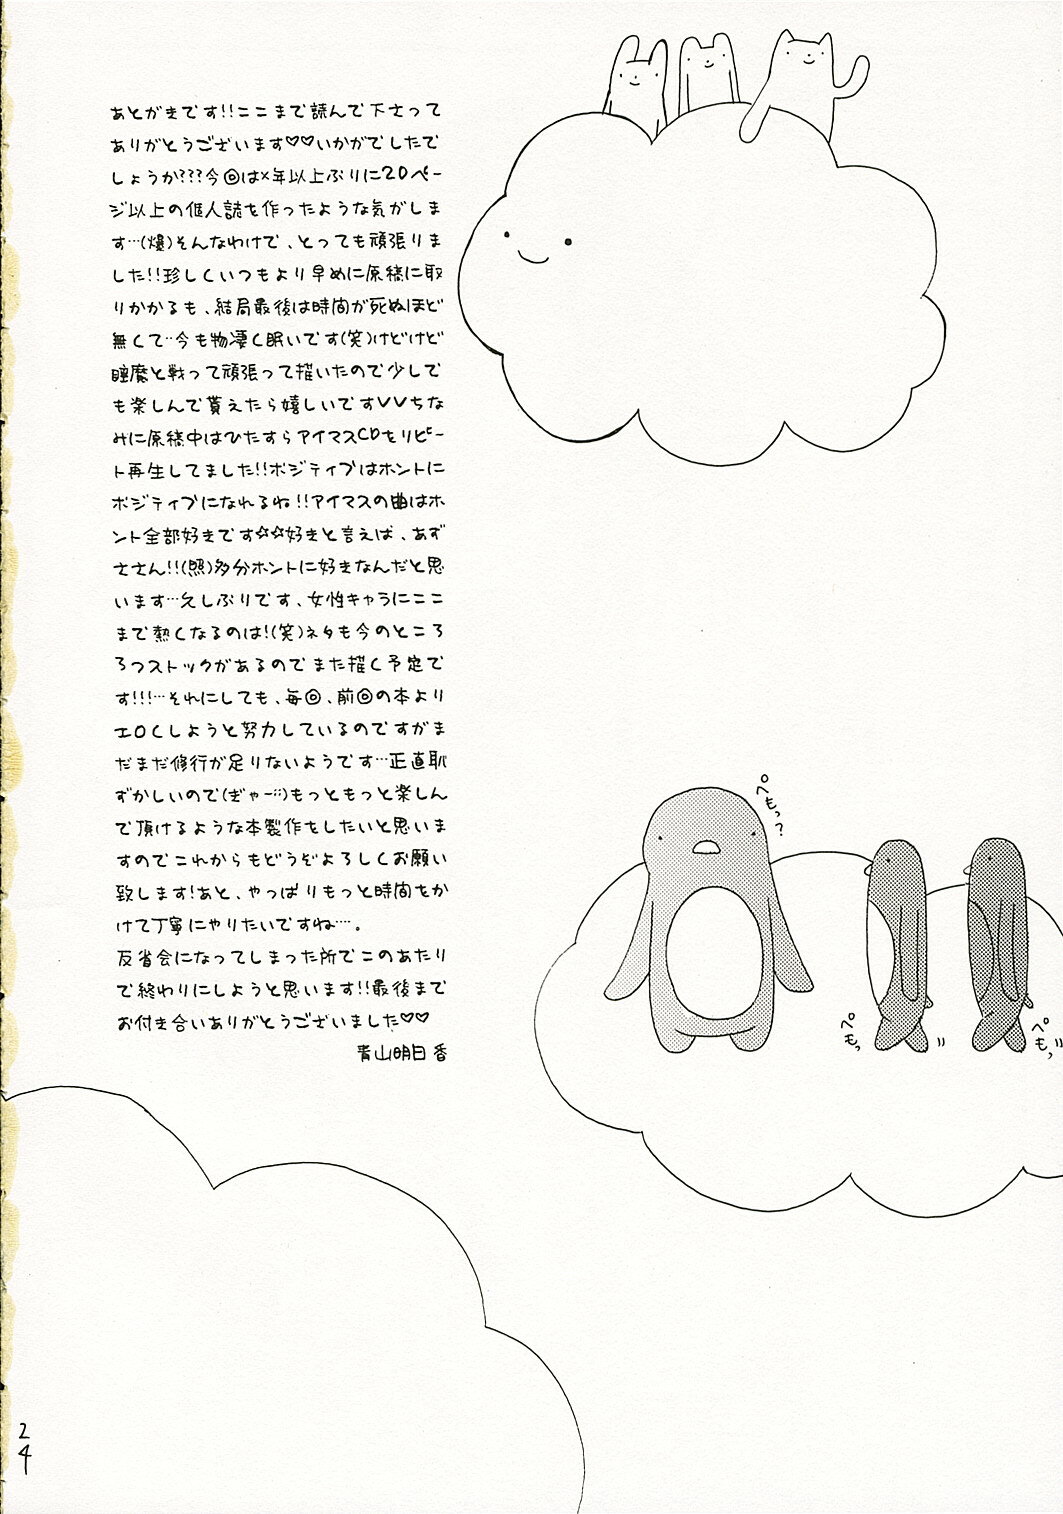 あとがきです!!ここまで読んで下さって
ありがとうございます♡♡いかがでしたで
しょうか???今回は×年以上ぶりに20ペー
ジ以上の個人誌を作ったような気がしま
す…(爆)そんなわけで、とっても頑張りま
した!!珍しくいつもより早めに原稿に取
りかかるも、結局最後は時間が死ぬほど
無くて…今も物凄く眠いです(笑)けどけど
睡魔と戦って頑張って描いたので少しで
も楽しんで貰えたら嬉しいですVVちな
みに原稿中はひたすらアイマスCDをリピー
ト再生してました!!ポジティブはホントに
ポジティブになれるね!!アイマスの曲はホ
ント全部好きです☆☆好きと言えば、あず
ささん!!(照)多分ホントに好きなんだと思
います…久しぶりです、女性キャラにここ
まで熱くなるのは!(笑)ネタも今のところ
3つストックがあるのでまた描く予定で
す!!!…それにしても、毎回、前回の本より
エロくしようと努力しているのですがま
だまだ修行が足りないようです…正直恥
ずかしいので(ぎゃー)もっともっと楽しん
で頂けるような本製作をしたいと思いま
すのでこれからもどうぞよろしくお願い
致します!あと、やっぱりもっと時間をか
けて丁寧にやりたいですね…。
反省会になってしまった所でこのあたり
で終わりにしようと思います!!最後まで
お付き合いありがとうございました♡♡
青山明日香
ぺもっ?
ぺもっ
ぺもっ
24